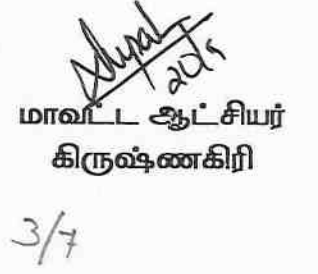 20/5
மாவட்ட ஆட்சியர்
கிருஷ்ணகிரி
3/7